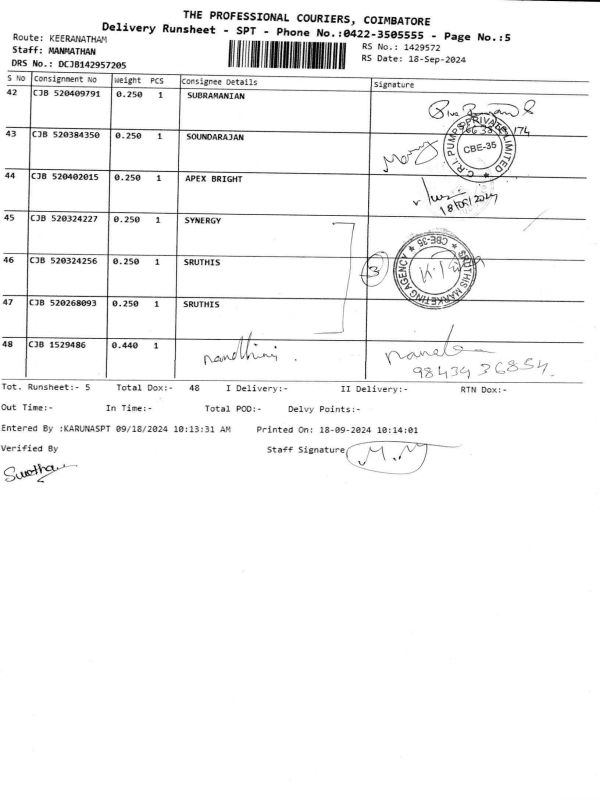 THE PROFESSIONAL COURIERS, COIMBATORE
Delivery Runsheet - SPT - Phone No.:0422-3505555 - Page No.:5
Route: KEERANATHAM
RS No.: 1429572
Staff: MANMATHAN
RS Date: 18-Sep-2024
DRS No.: DCJB142957205
S No Consignment No Weight PCS Consignee Details Signature
42 CJB 520409791 0.250 1 SUBRAMANIAN
43 CJB 520384350 0.250 1 SOUNDARAJAN
C.R.I. PUMPS PRIVATE LIMITED
CBE-35
44 CJB 520402015 0.250 1 APEX BRIGHT
18/09/2024
45 CJB 520324227 0.250 1 SYNERGY
46 CJB 520324256 0.250 1 SRUTHIS
3
SRUTHIS MARKETING AGENCY
CBE-35
47 CJB 520268093 0.250 1 SRUTHIS
48 CJB 1529486 0.440 1 nandhini.
98434 36854.
Tot. Runsheet:- 5 Total Dox:- 48 I Delivery:- II Delivery:- RTN Dox:-
Out Time:- In Time:- Total POD:- Delvy Points:-
Entered By :KARUNASPT 09/18/2024 10:13:31 AM Printed On: 18-09-2024 10:14:01
Verified By Staff Signature
M.M